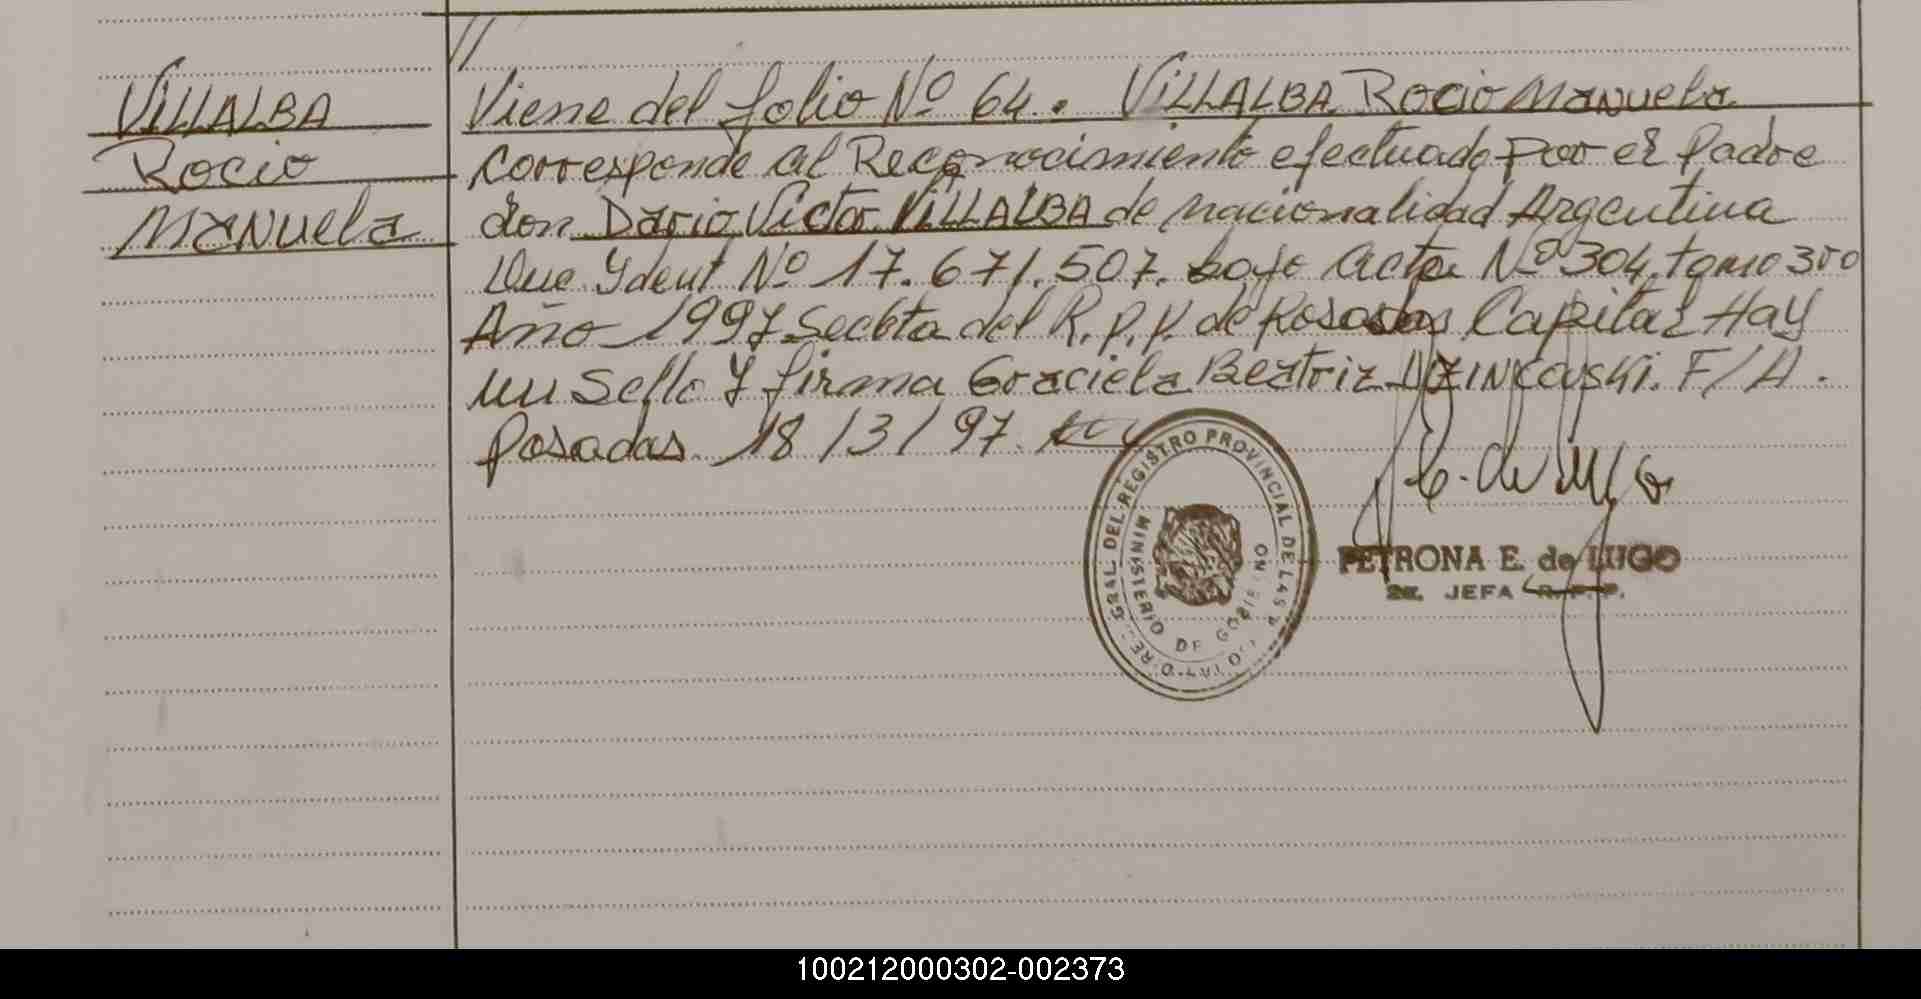 //
VILLALBA
Rocio
Manuela
Viene del folio Nº 64. VILLALBA Rocio Manuela
corresponde al Reconocimiento efectuado por el Padre
don Dario Victor VILLALBA de nacionalidad Argentina
Que Ydent Nº 17.671.507. bajo acta Nº 304. tomo 3ro
Año 1997 Seccta del R.P.P. de Posadas Capital Hay
un Sello y firma Graciela Beatriz F/A.
Posadas 18/3/97.
E. de Lugo
GRAL DEL REGISTRO PROVINCIAL DE LAS
MINISTERIO DE GOBIERNO
PETRONA E. de LUGO
JEFA R.P.P.
100212000302-002373